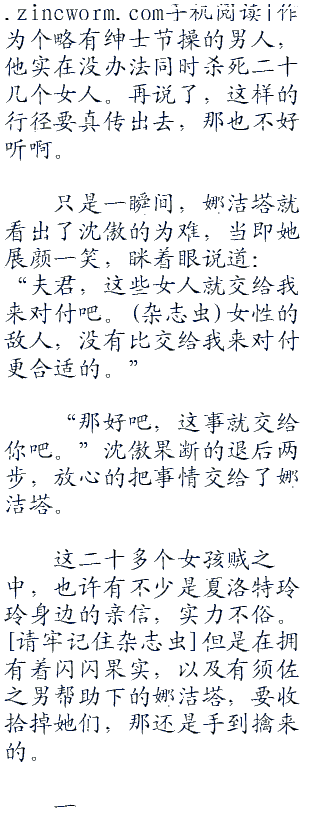 .zincworm.com手机阅读|作
为个略有绅士节操的男人，
他实在没办法同时杀死二十
几个女人。再说了，这样的
行径要真传出去，那也不好
听啊。
只是一瞬间，娜洁塔就
看出了沈傲的为难，当即她
展颜一笑，眯着眼说道：
“夫君，这些女人就交给我
来对付吧。(杂志虫)女性的
敌人，没有比交给我来对付
更合适的。”
“那好吧，这事就交给
你吧。”沈傲果断的退后两
步，放心的把事情交给了娜
洁塔。
这二十多个女孩贼之
中，也许有不少是夏洛特玲
玲身边的亲信，实力不俗。
[请牢记住杂志虫]但是在拥
有着闪闪果实，以及有须佐
之男帮助下的娜洁塔，要收
拾掉她们，那还是手到擒来
的。
一